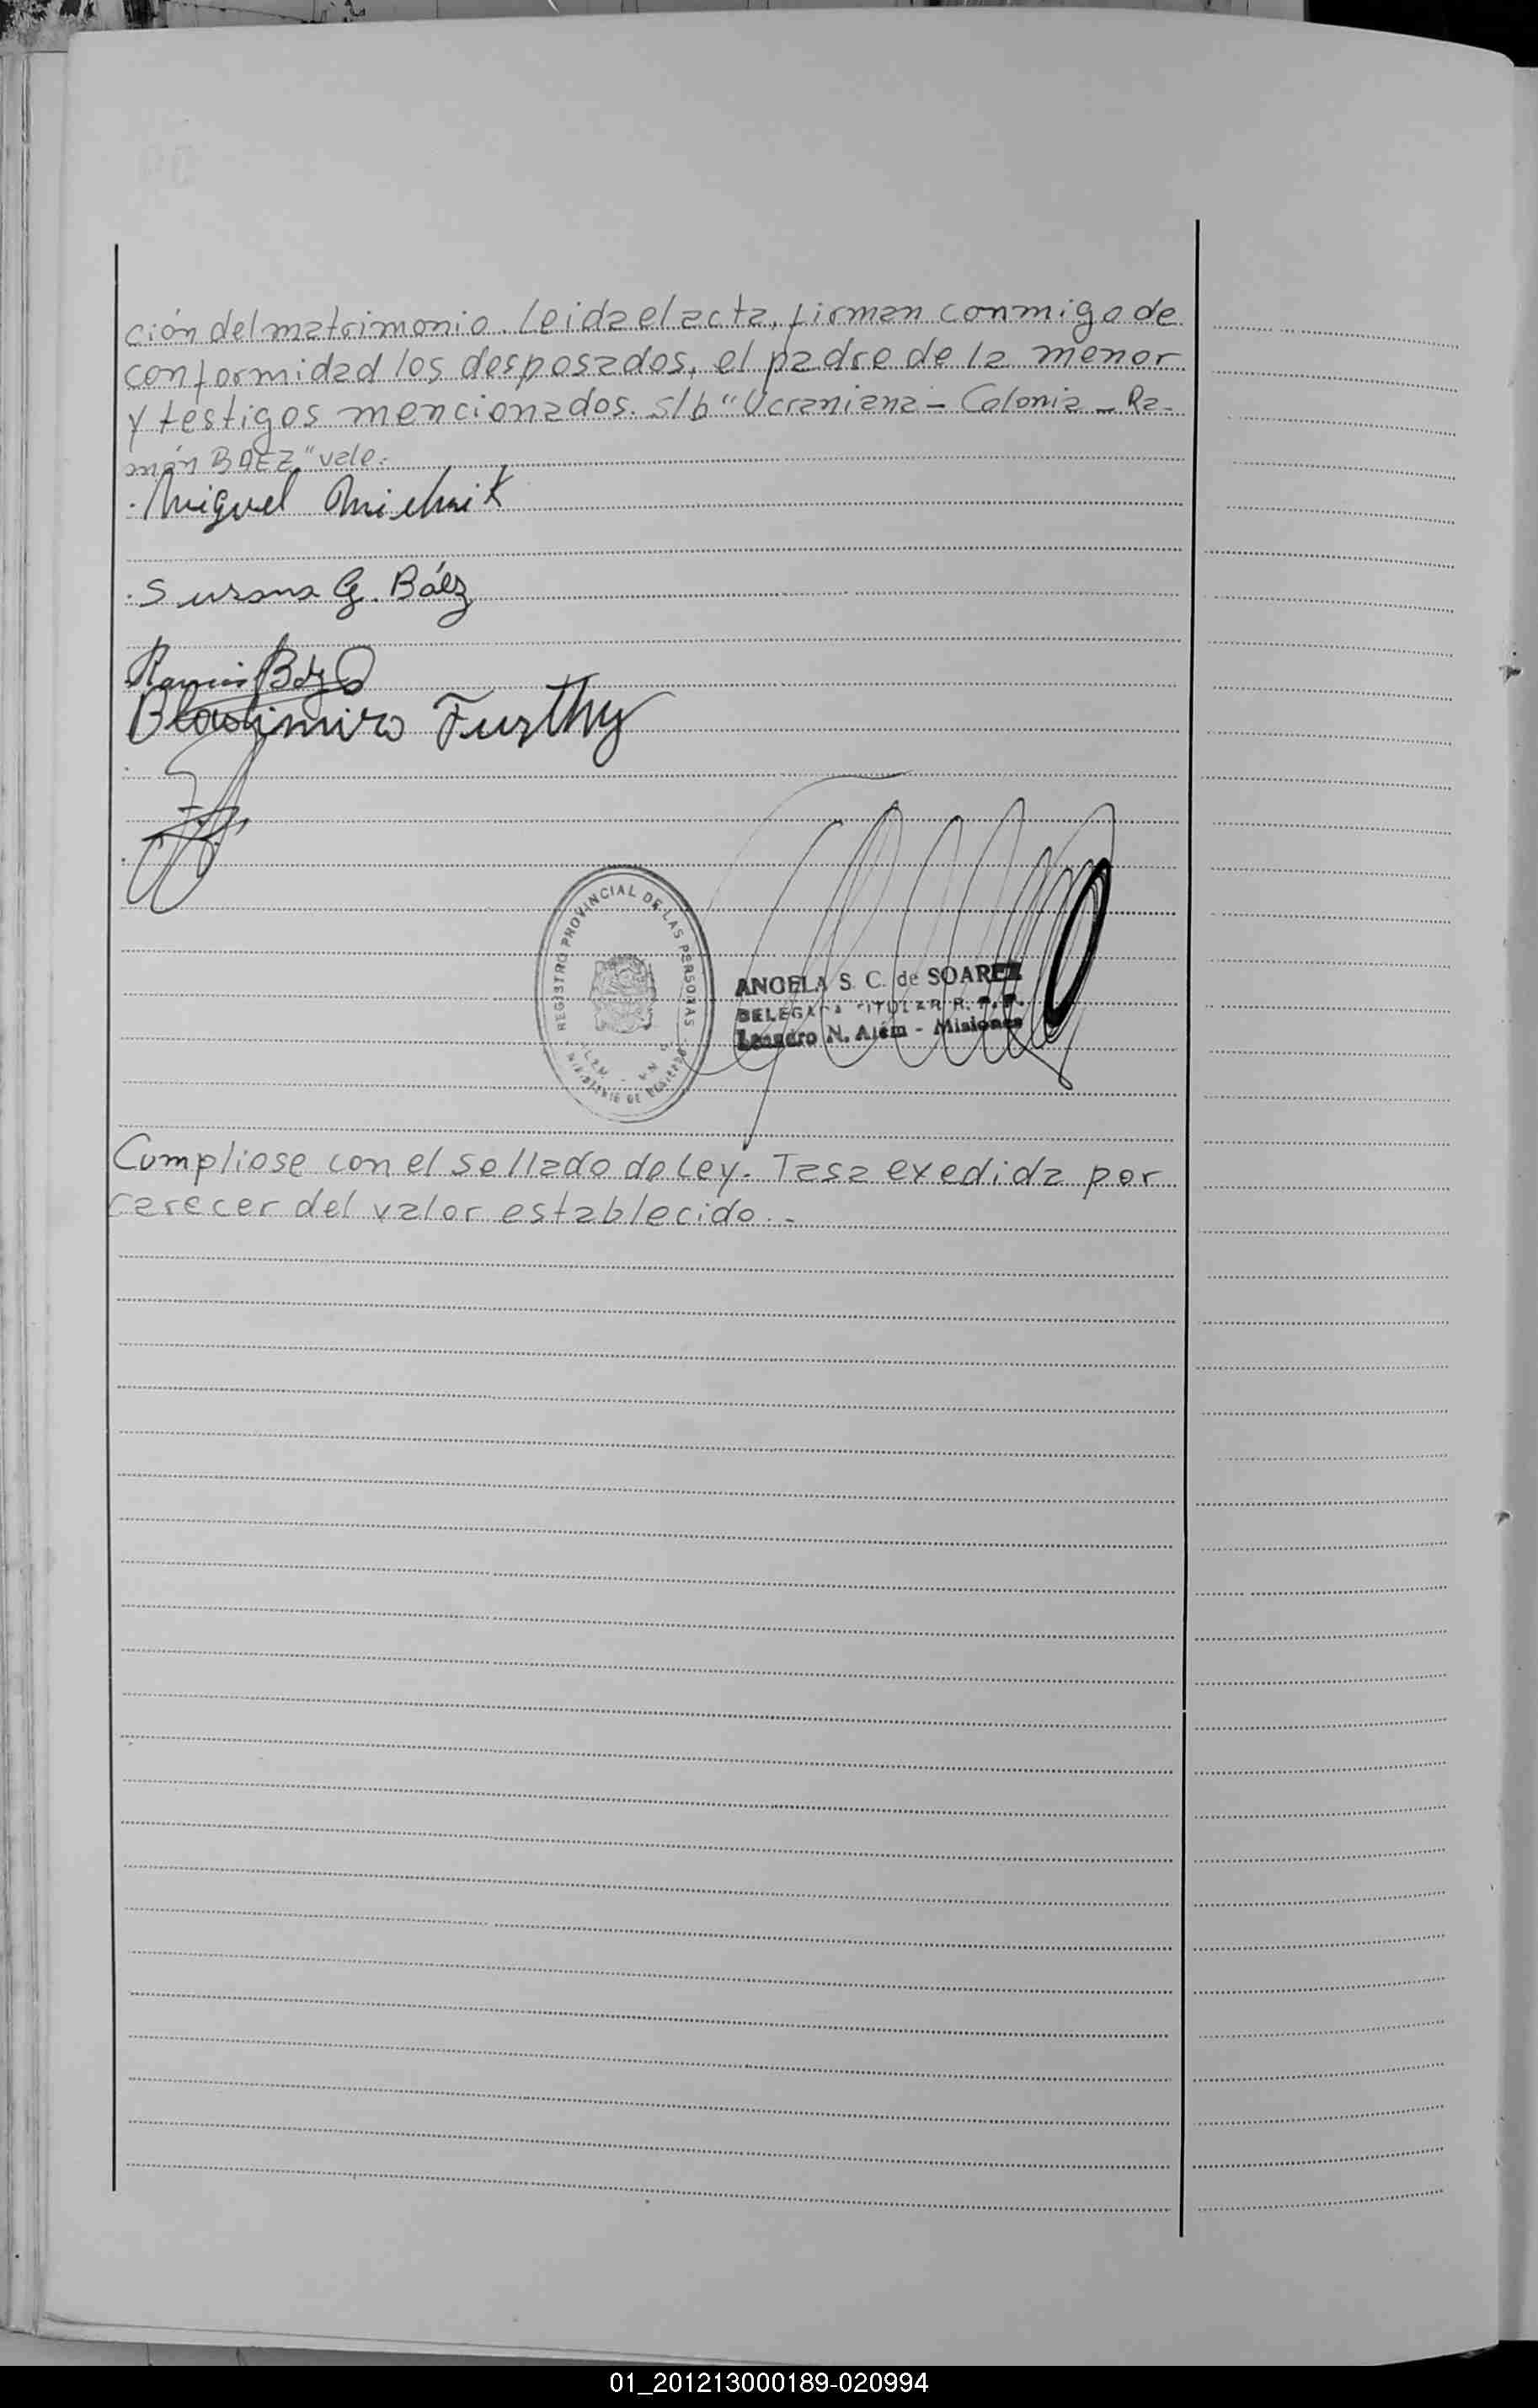 ción del matrimonio. Leida el acta, firman conmigo de
conformidad los desposados, el padre de la menor
y testigos mencionados. S/b "Ucraniana - Colonia - Ra-
món BAEZ" vale.
Miguel Michnik
Susana G. Báez
Ramón Báez
Bladimiro Furthy
REGISTRO PROVINCIAL DE LAS PERSONAS
ANGELA S. C. de SOAREZ
DELEGADA TITULAR R. P. P.
Leandro N. Além - Misiones
Cumpliose con el sellado de Ley. Tasa exedida por
carecer del valor establecido.-
01_201213000189-020994